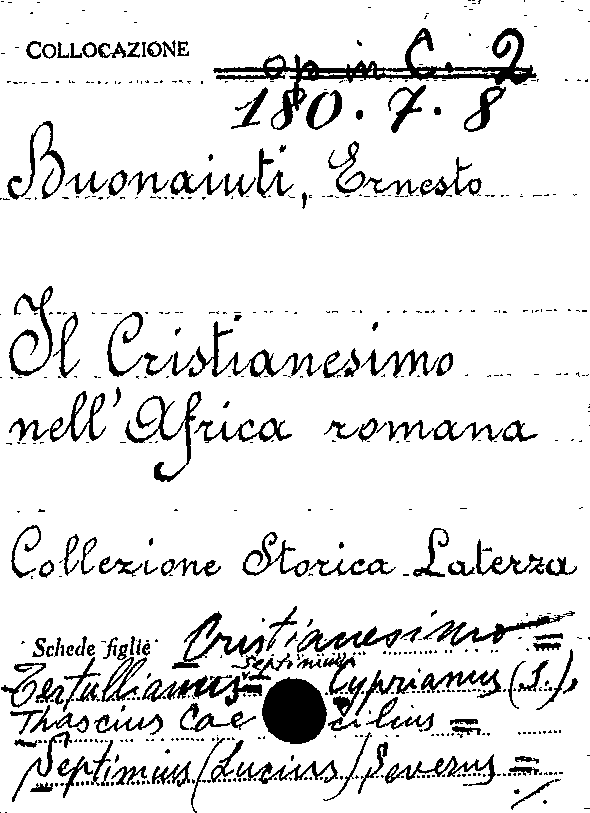 COLLOCAZIONE op in C. 2
180.7.8
Buonaiuti, Ernesto
Il Cristianesimo
nell'Africa romana
Collezione Storica Laterza
Schede figlie Cristianesimo =
Septimius
Tertullianus = Cyprianus (S.),
Thascius Cae cilius =
Septimius (Lucius) Severus =
./.